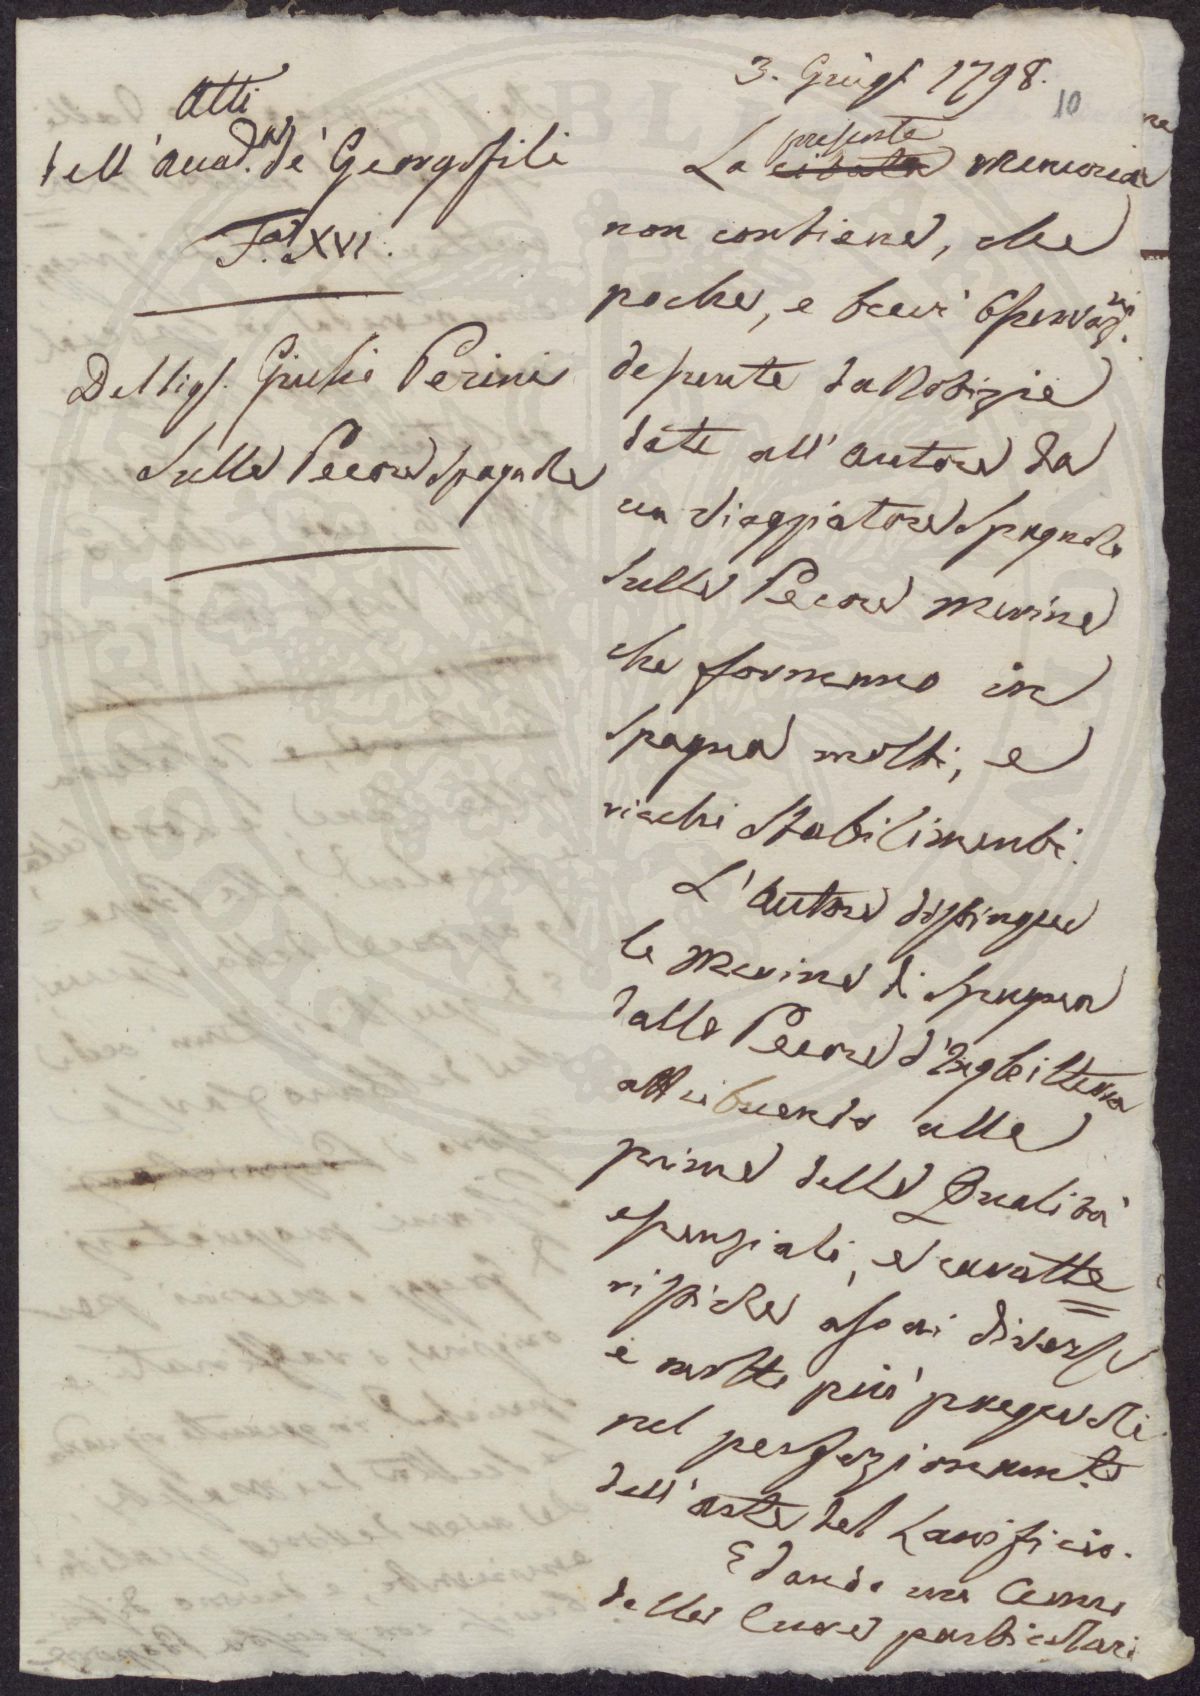 Atti
dell'Accad.a de' Georgofili
T. XVI.
Del Sig.r Giulio Perini
Sulle Pecore Spagnole
3. Giug.o 1798.
10
presente
La citata memoria
non contiene, che
poche, e brevi Osservaz.ni
desunte da Notizie
date all'autore da
un viaggiatore Spagnolo
sulle Pecore merine
che formano in
Spagna molti, e
ricchi Stabilimenti.
L'autore distingue
le merine di Spagna
dalle Pecore d'Inghilterra
attribuendo alle
prime delle Qualità
essenziali, e caratte=
ristiche assai diverse
e molto più pregevoli
nel perfezionamento
dell'arte del Lanificio.
E dando un Cenno
delle Cure particolari